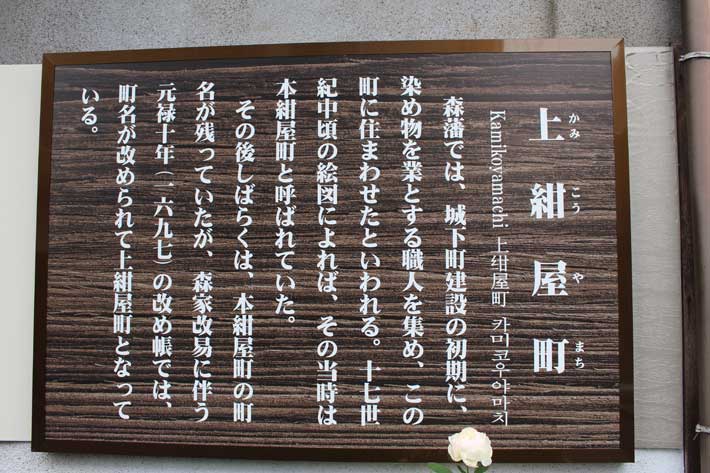 上紺屋町
かみ こう や まち
Kamikoyamachi 上绀屋町 카미코우야마치
森藩では、城下町建設の初期に、
染め物を業とする職人を集め、この
町に住まわせたといわれる。十七世
紀中頃の絵図によれば、その当時は
本紺屋町と呼ばれていた。
その後しばらくは、本紺屋町の町
名が残っていたが、森家改易に伴う
元禄十年(一六九七)の改め帳では、
町名が改められて上紺屋町となって
いる。